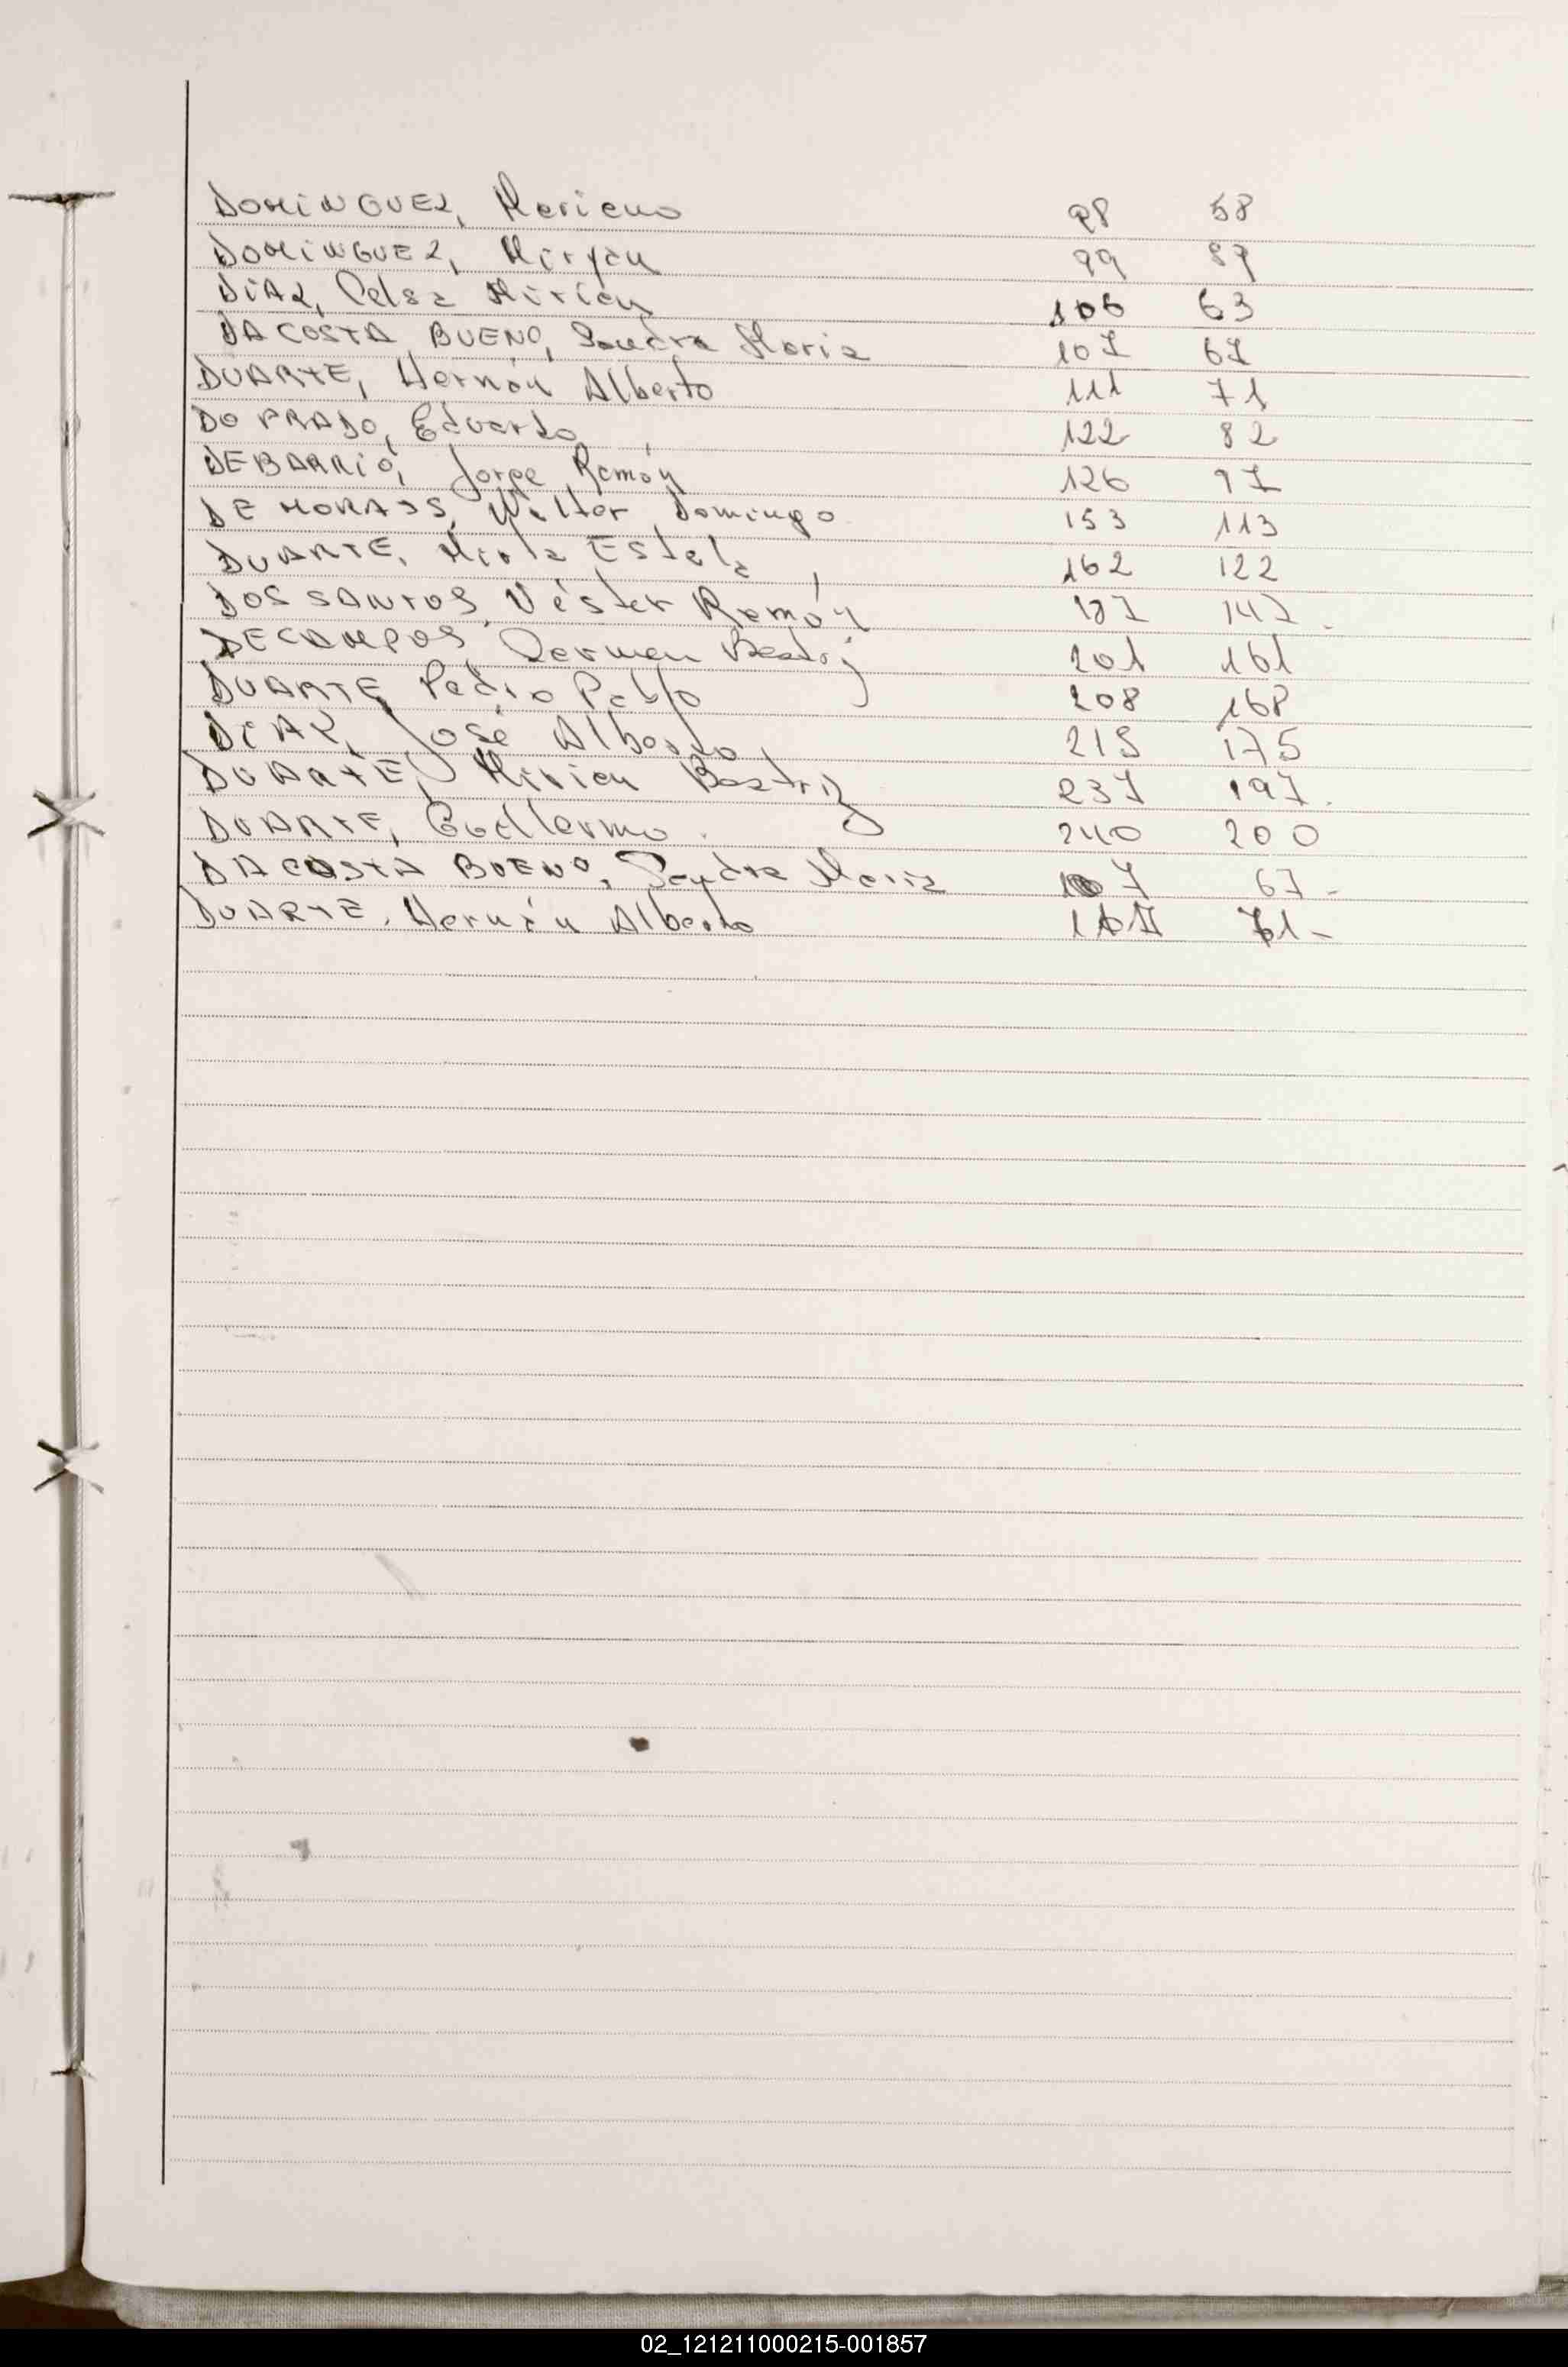 DOMINGUEZ, Mariano 98 58
DOMINGUEZ, Miryan 99 89
DIAZ, Celsa Mirian 106 63
DA COSTA BUENO, Sandra Maria 107 67
DUARTE, Hernán Alberto 111 71
DO PRADO, Eduardo 122 82
DEBARRIO, Jorge Ramón 126 97
DE MORAIS, Walter Domingo 153 113
DUARTE, Mirta Estela 162 122
DOS SANTOS, Véster Ramón 187 147.
DECAMPOS Carmen Beatriz 201 161
DUARTE Pedro Pablo 208 168
DIAZ, José Alberto 215 175
DUARTE, Mirian Beatriz 237 197.
DUARTE, Guillermo. 240 200
DA COSTA BUENO, Sandra Maria 107 67-
DUARTE, Hernán Alberto 71-
02_121211000215-001857